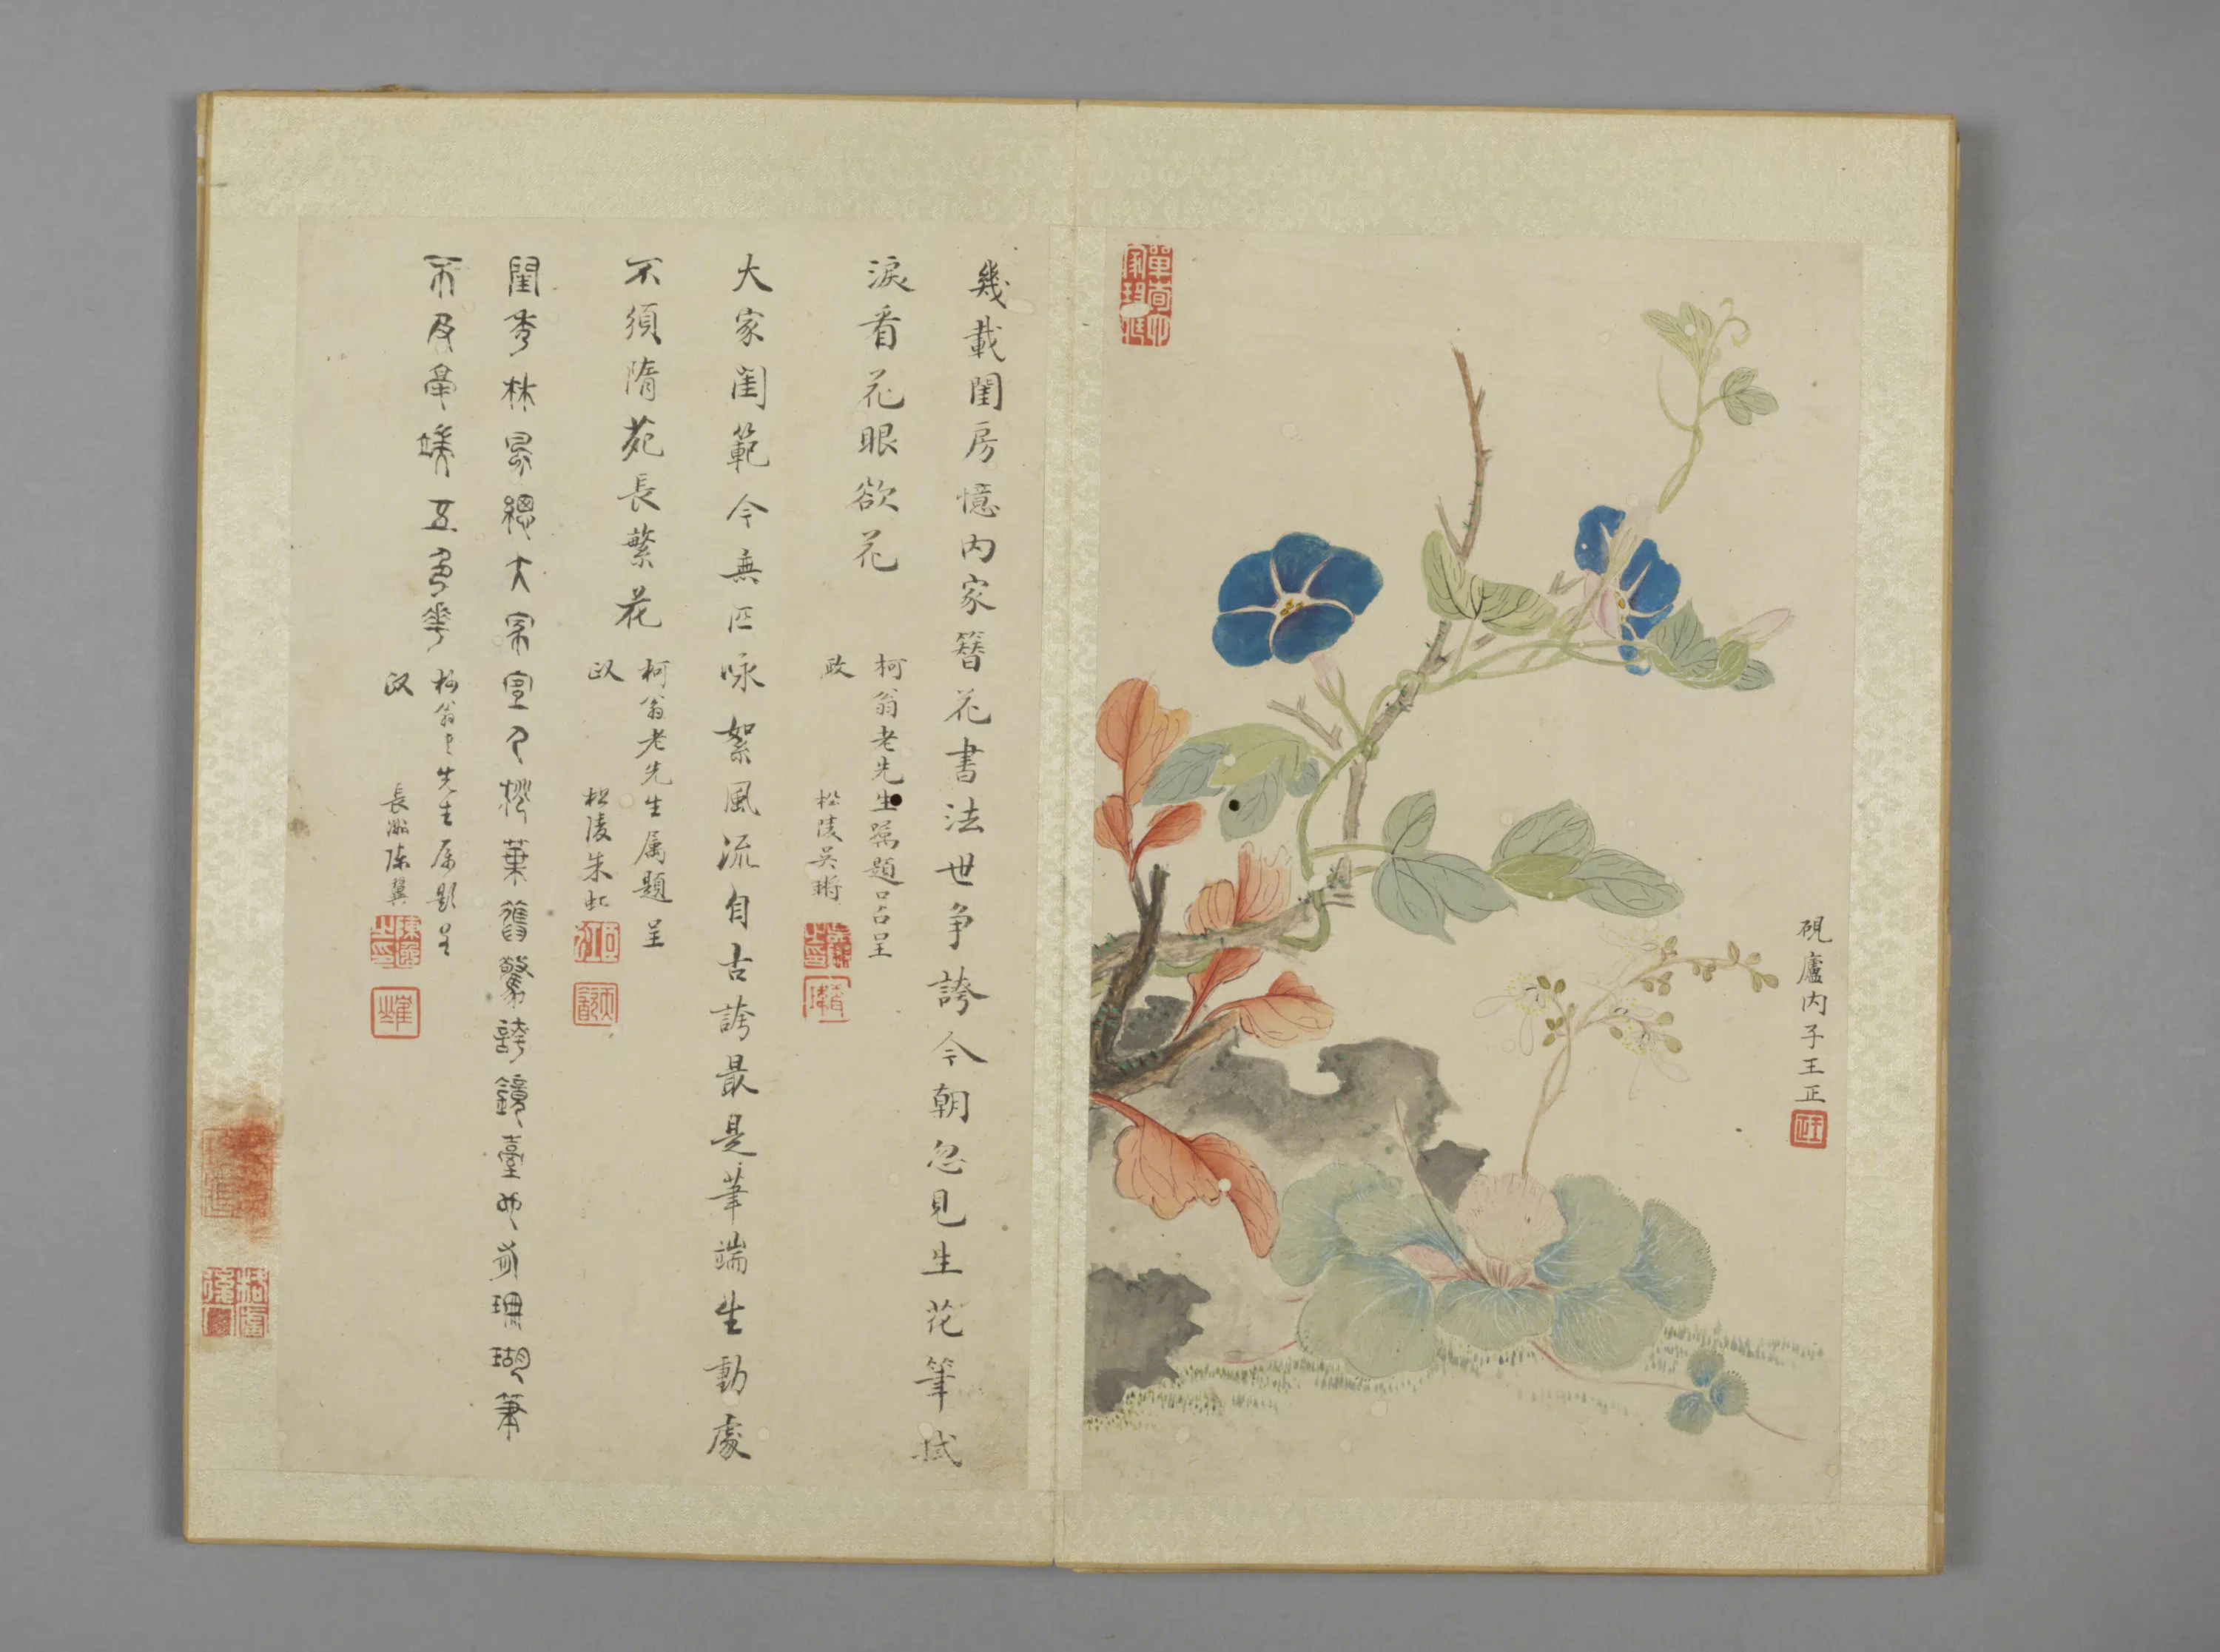 硯廬內子王正
幾載閨房憶內家簪花書法世爭誇今朝忽見生花筆拭
淚看花眼欲花
柯翁老先生屬題呈
政
松陵吳
大家閨範今無匹咏絮風流自古誇最是筆端生動處
不須隋苑長繁花
柯翁老先生属題呈
政
松陵朱虹
閨秀林
總大家
葉舊驚誇鏡臺
珊瑚筆
不及
端五色華
柯翁
先生属題呈
政
長洲陳翼